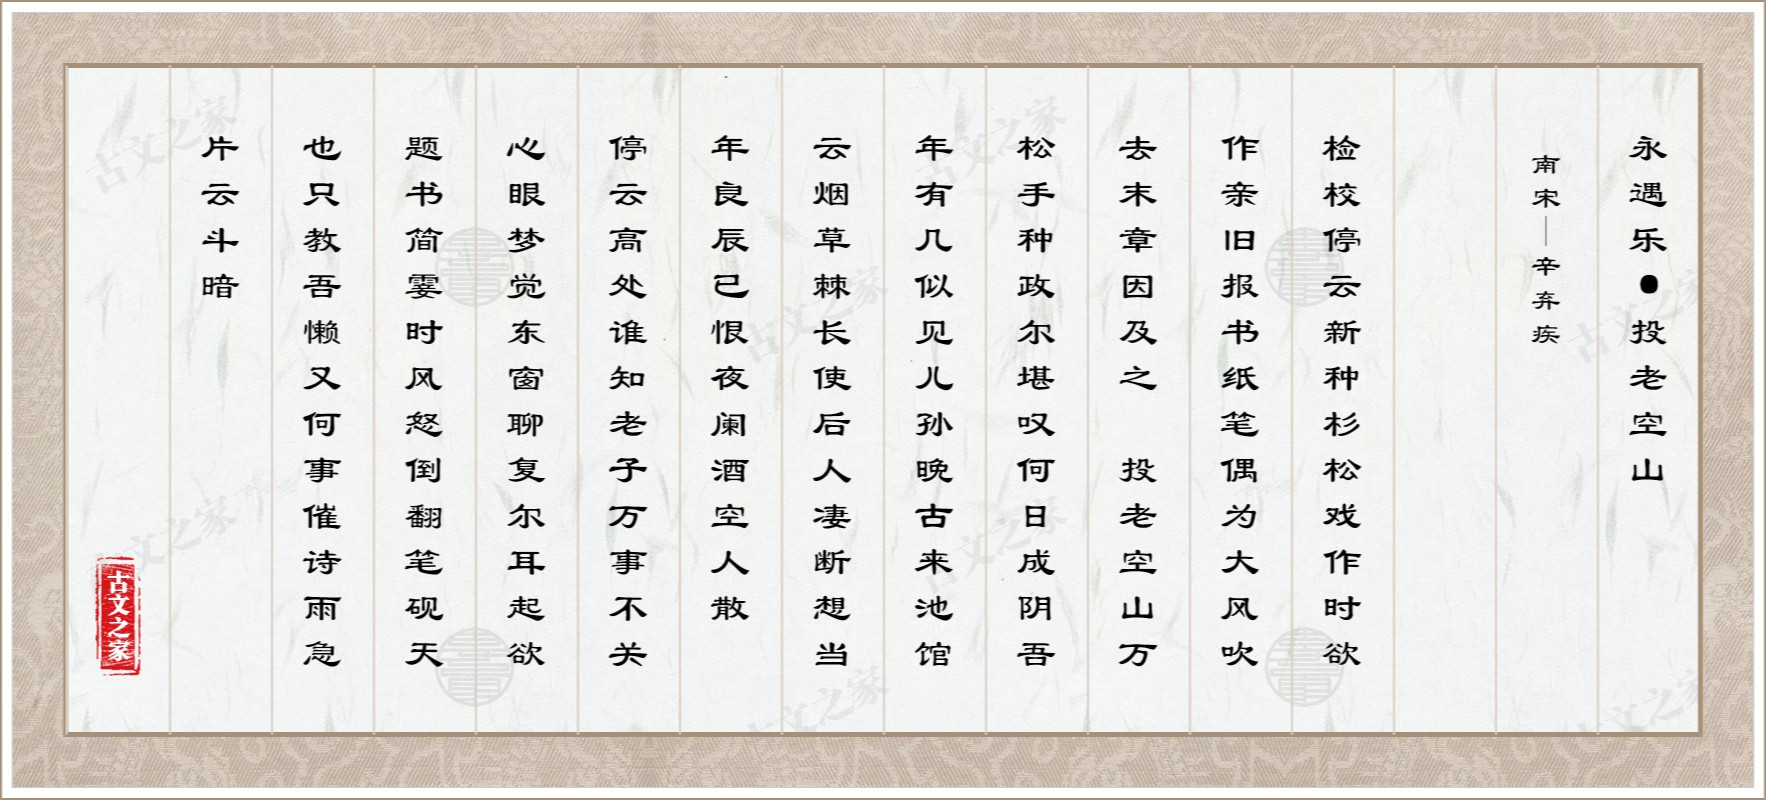 永遇乐●投老空山
南宋—辛弃疾
检校停云新种杉松戏作时欲
作亲旧报书纸笔偶为大风吹
去末章因及之 投老空山万
松手种政尔堪叹何日成阴吾
年有几似见儿孙晚古来池馆
云烟草棘长使后人凄断想当
年良辰已恨夜阑酒空人散
停云高处谁知老子万事不关
心眼梦觉东窗聊复尔耳起欲
题书简霎时风怒倒翻笔砚天
也只教吾懒又何事催诗雨急
片云斗暗
古文之家